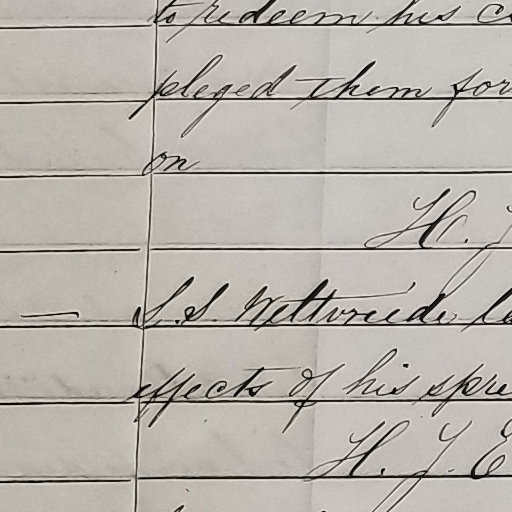 to redeem his
pleged them for
on
H. J
— S. S.
effects of his spre
H. J. E